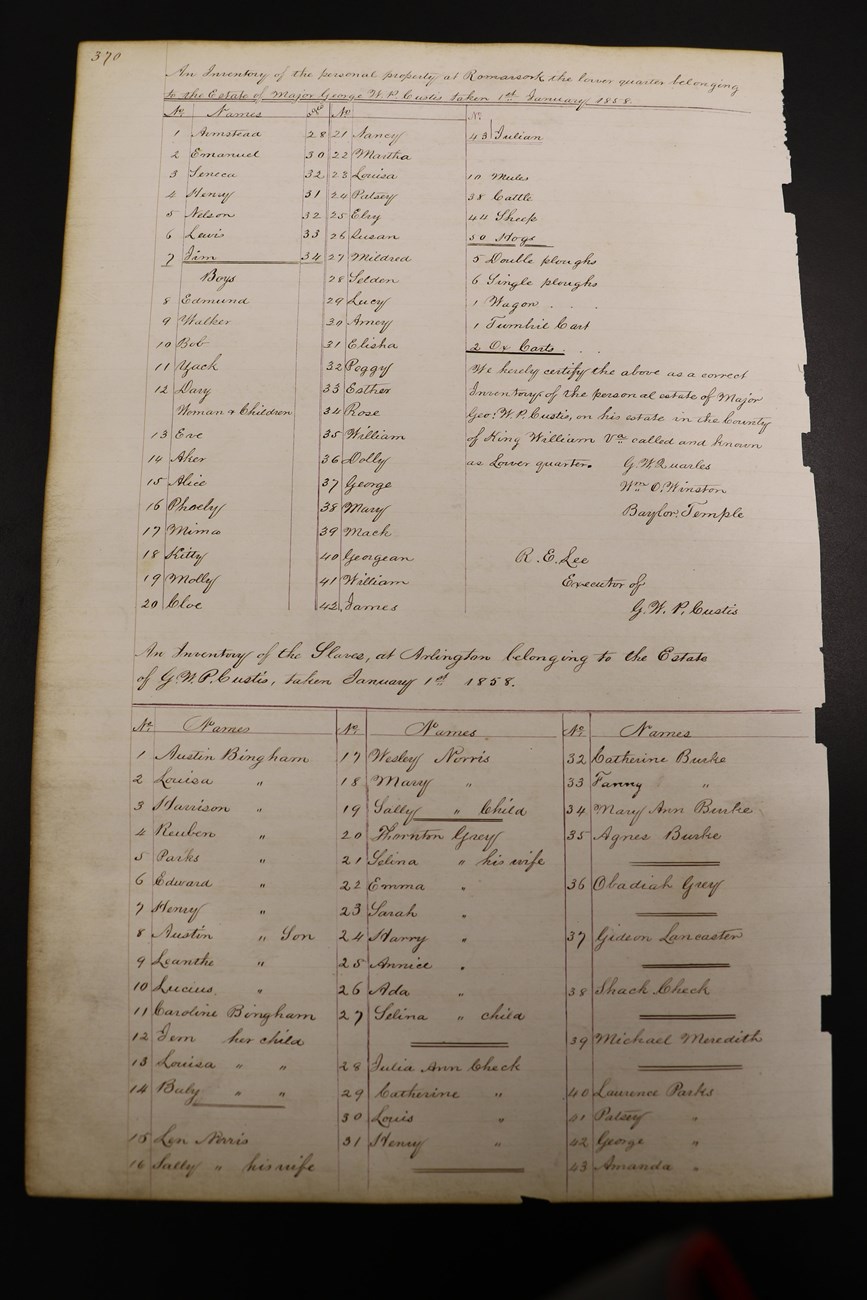 370
An Inventory of the personal property at Romancock the lower quarter belonging
to the Estate of Major George W. P. Custis taken 1st January 1858.
No Names ages No
No
1 Armstead 28
2 Emanuel 30
3 Seneca 32
4 Henry 31
5 Nelson 32
6 Lewis 33
7 Jim 34
Boys
8 Edmund
9 Walker
10 Bob
11 Yack
12 Davy
Woman & Children
13 Eve
14 Aker
15 Alice
16 Phoeby
17 Mima
18 Kitty
19 Molly
20 Cloe
21 Nancy
22 Martha
23 Louisa
24 Patsey
25 Elvy
26 Susan
27 Mildred
28 Selden
29 Lucy
30 Amey
31 Elisha
32 Peggy
33 Esther
34 Rose
35 William
36 Dolly
37 George
38 Mary
39 Mack
40 Georgean
41 William
42 James
43 Julian
10 Mules
38 Cattle
44 Sheep
50 Hogs
5 Double ploughs
6 Single ploughs
1 Wagon
1 Tumbril Cart
2 Ox Carts
We hereby certify the above as a correct
Inventory of the personal estate of Major
Geo: W. P. Custis, on his estate in the County
of King William Va called and known
as Lower quarter. G. W. Quarles
Wm O. Winston
Baylor Temple
R. E. Lee
Executor of
G. W. P. Custis
An Inventory of the Slaves, at Arlington belonging to the Estate
of G. W. P. Custis, taken January 1st 1858.
No Names No Names No Names
1 Austin Bingham
2 Louisa "
3 Harrison "
4 Reuben "
5 Parks "
6 Edward "
7 Henry "
8 Austin " Son
9 Leanthe "
10 Lucius "
11 Caroline Bingham
12 Jem her child
13 Louisa " "
14 Baby " "
15 Len Norris
16 Sally " his wife
17 Wesley Norris
18 Mary "
19 Sally " Child
20 Thornton Grey
21 Selina " his wife
22 Emma "
23 Sarah "
24 Harry "
25 Annice "
26 Ada "
27 Selina " child
28 Julia Ann Check
29 Catherine "
30 Louis "
31 Henry "
32 Catherine Burke
33 Fanny "
34 Mary Ann Burke
35 Agnes Burke
36 Obadiah Grey
37 Gideon Lancaster
38 Shack Check
39 Michael Meredith
40 Laurence Parks
41 Patsey "
42 George "
43 Amanda "